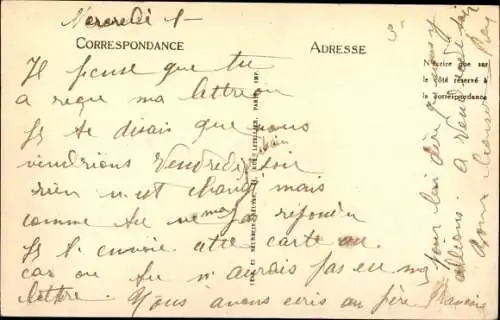 Mercredi
CORRESPONDANCE
ADRESSE
N'écrire que sur
le côté réservé à
la correspondance
Je pense que tu
a reçue ma lettre
Je te disais que nous
viendrions Vendredi soir
rien n'est changé mais
comme tu ne m'a répondu
Je t'envoie cette carte
car tu n'aurais pas eu ma
lettre. Nous avons écris au père Francis
pour lui dire que nous y
allions. a Vendredi soir
Bons baisers